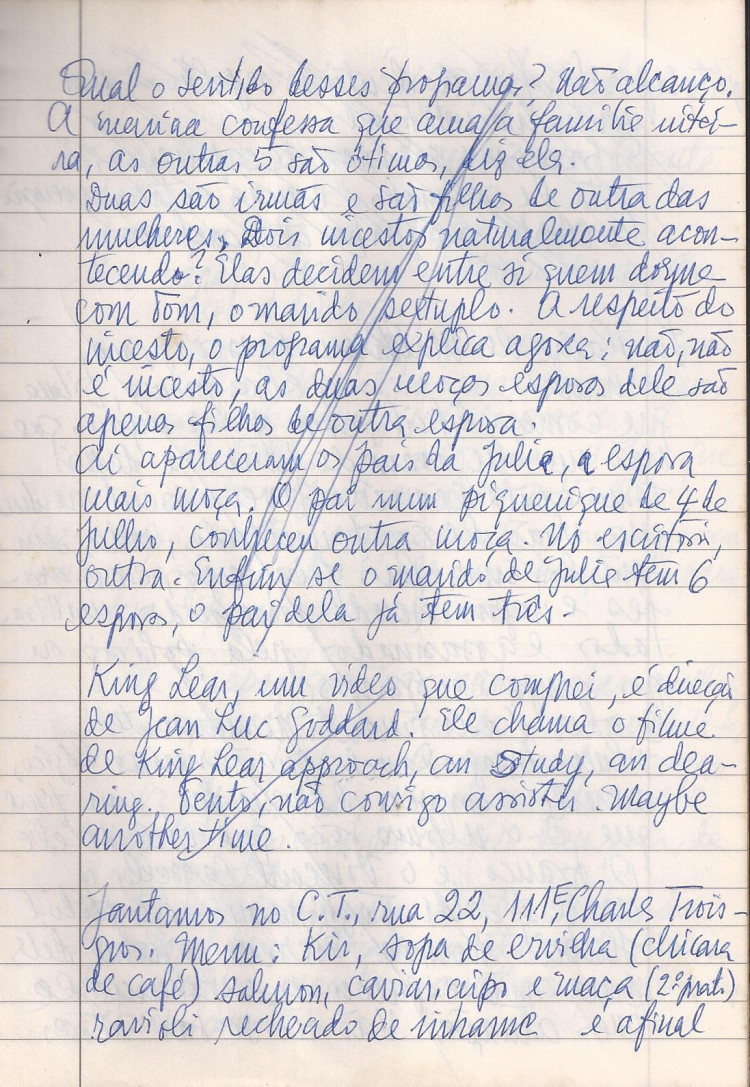 Qual o sentido desses programas? Não alcanço.
A menina confessa que ama a familia intei-
ra, as outras 5 são ótimas, diz ela.
Duas são irmãs e são filhas de outra das
mulheres. Dois incestos naturalmente acon-
tecendo? Elas decidem entre si quem dorme
com Tom, o marido sextuplo. A respeito do
incesto, o programa explica agora: não, não
é incesto, as duas moças esposas dele são
apenas filhas de outra esposa.
Aí apareceram os pais da Julie, a esposa
mais moça. O pai num piquenique de 4 de
Julho, conheceu outra moça. No escritório,
outra. Enfim se o marido de Julie tem 6
esposas, o pai dela já tem três.
King Lear, um video que comprei, é direção
de Jean Luc Goddard. Ele chama o filme
de King Lear approach, an study, an
Tento, não consigo assistir. Maybe
another time.
Jantamos no C.T., rua 22, 111E, Charles Trois-
gros. Menu: Kir, sopa de ervilha (chicara
de café) salmon, caviar, e maça (2º prat.)
ravioli recheado de inhame é afinal